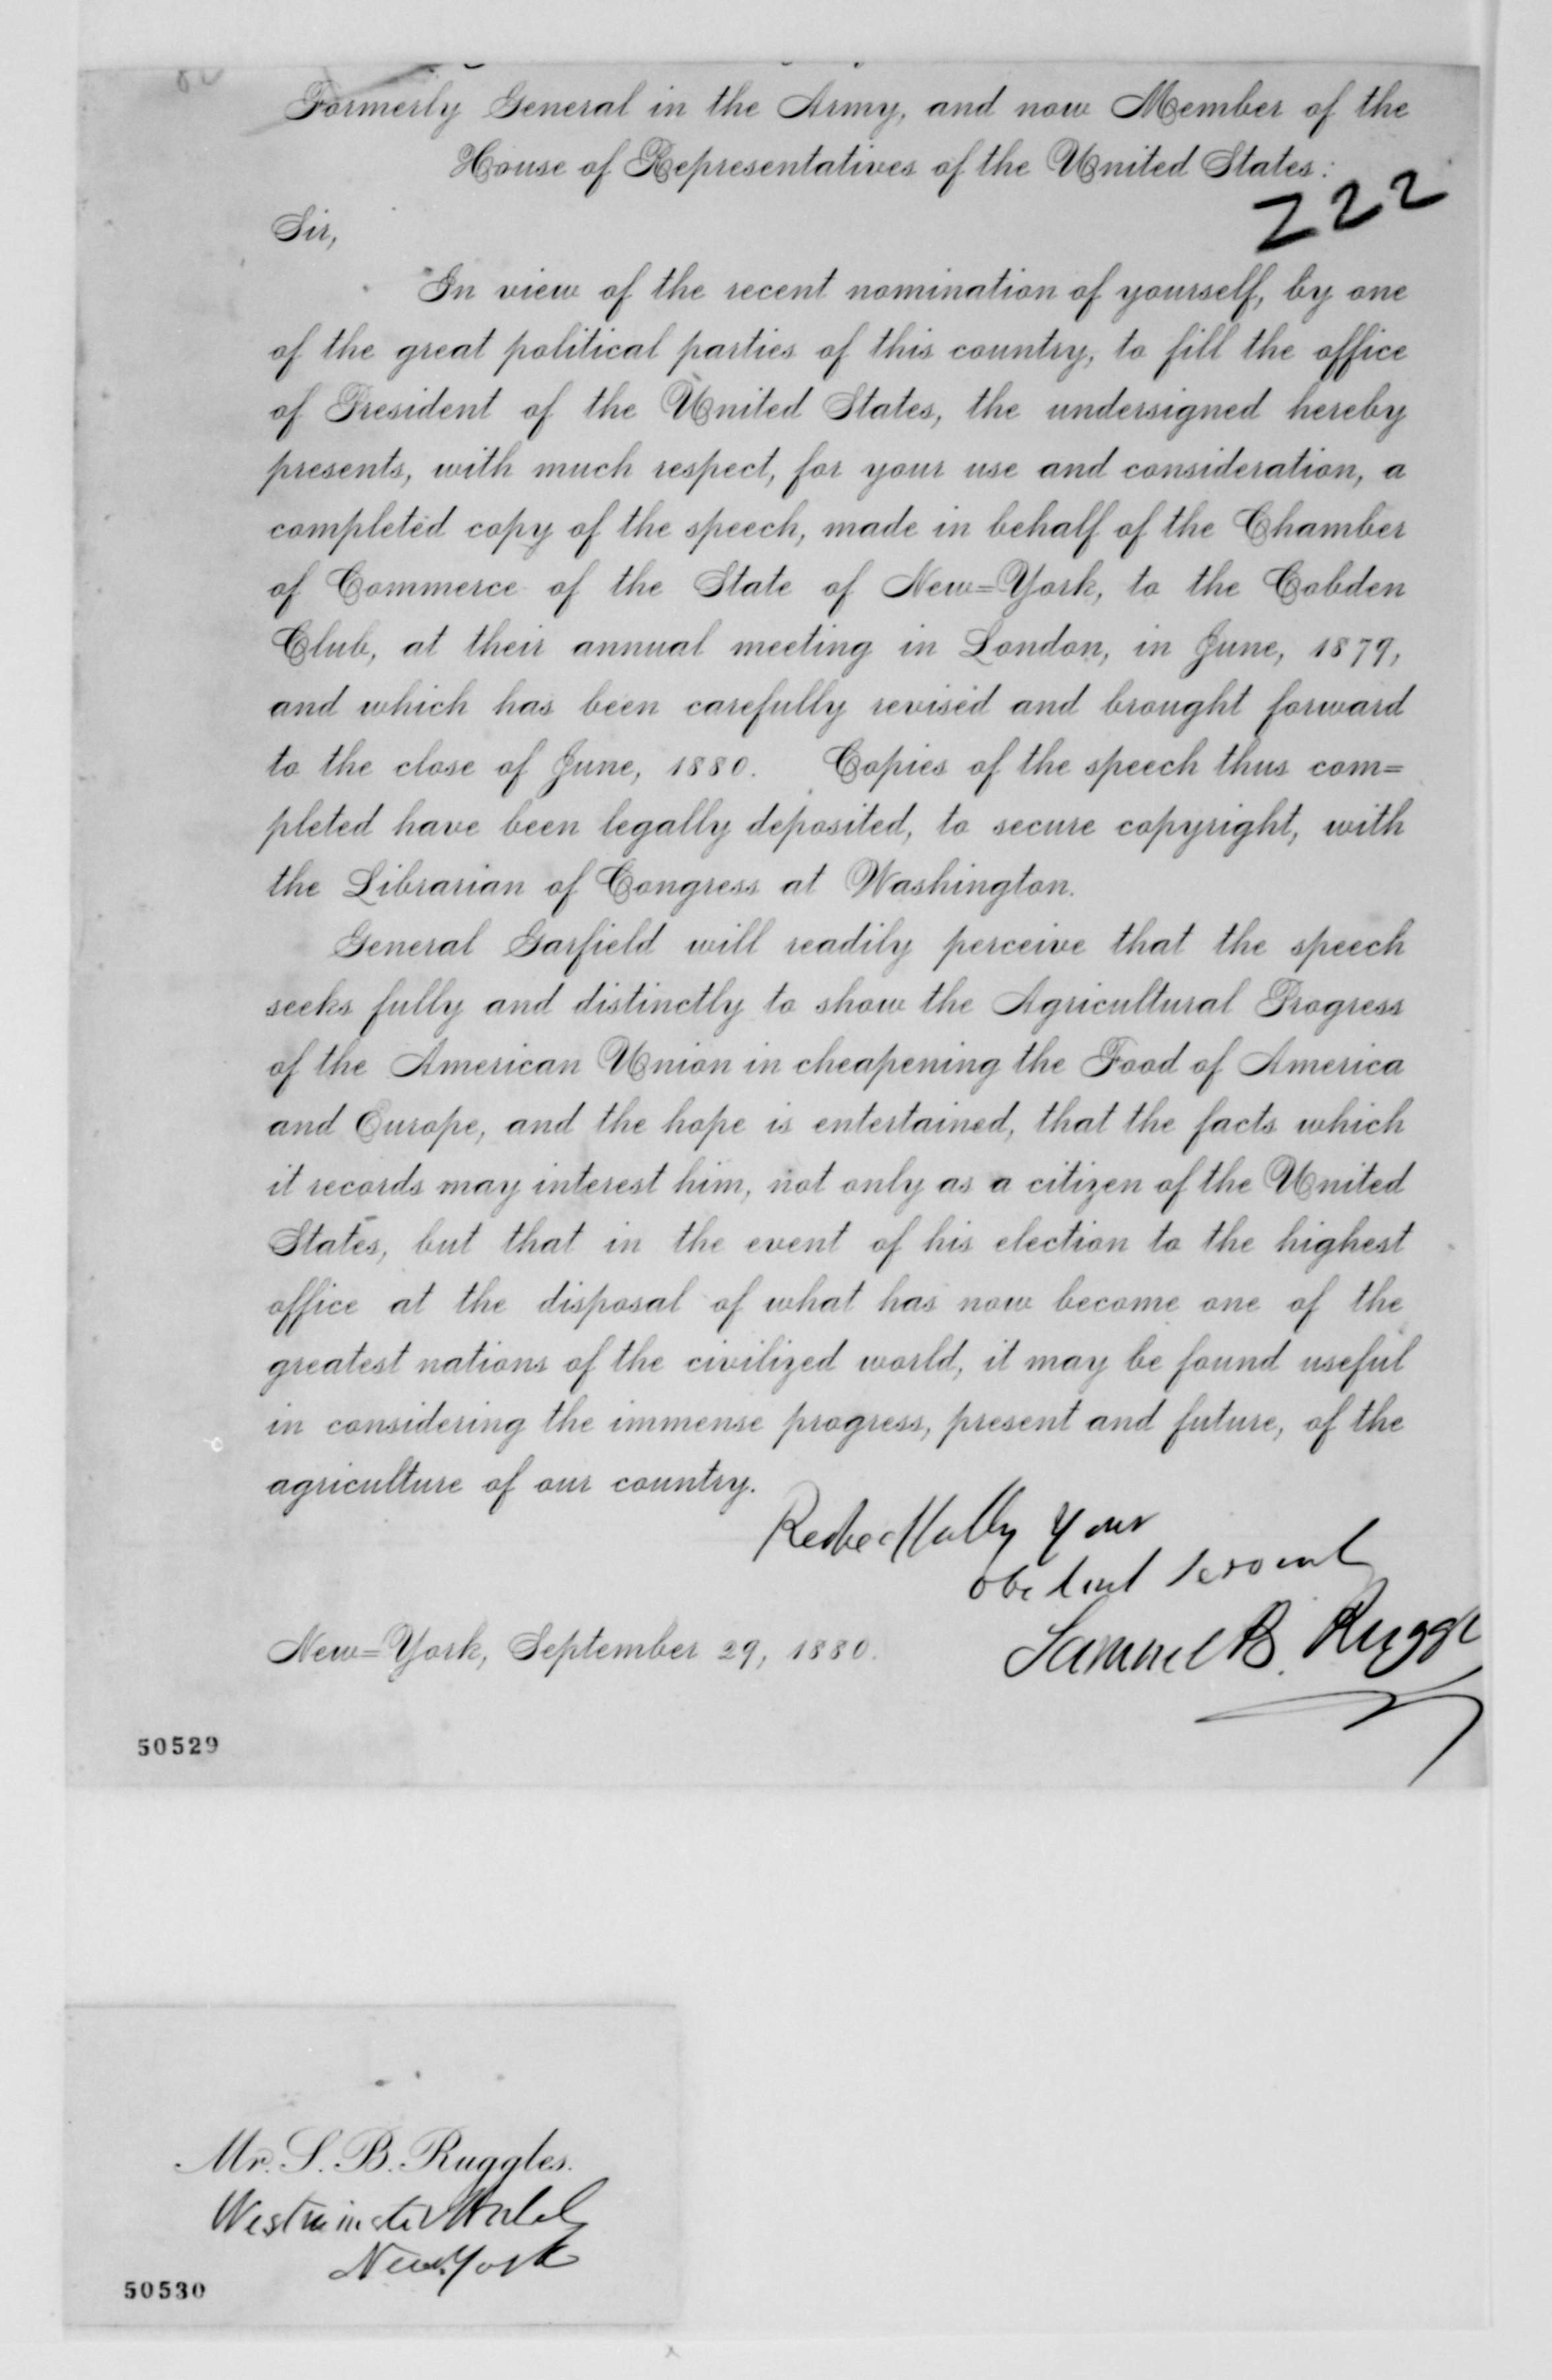 Formerly General in the Army, and now Member of the
House of Representatives of the United States:
222
Sir,
In view of the recent nomination of yourself, by one
of the great political parties of this country, to fill the office
of President of the United States, the undersigned hereby
presents, with much respect, for your use and consideration, a
completed copy of the speech, made in behalf of the Chamber
of Commerce of the State of New=York, to the Cobden
Club, at their annual meeting in London, in June, 1879,
and which has been carefully revised and brought forward
to the close of June, 1880. Copies of the speech thus com=
pleted have been legally deposited, to secure copyright, with
the Librarian of Congress at Washington.
General Garfield will readily perceive that the speech
seeks fully and distinctly to show the Agricultural Progress
of the American Union in cheapening the Food of America
and Europe, and the hope is entertained, that the facts which
it records may interest him, not only as a citizen of the United
States, but that in the event of his election to the highest
office at the disposal of what has now become one of the
greatest nations of the civilized world, it may be found useful
in considering the immense progress, present and future, of the
agriculture of our country.
Respectfully your
obedient servant
Samuel B. Ruggles
New=York, September 29, 1880.
50529
Mr. S. B. Ruggles.
Westminster Hotel
New York
50530